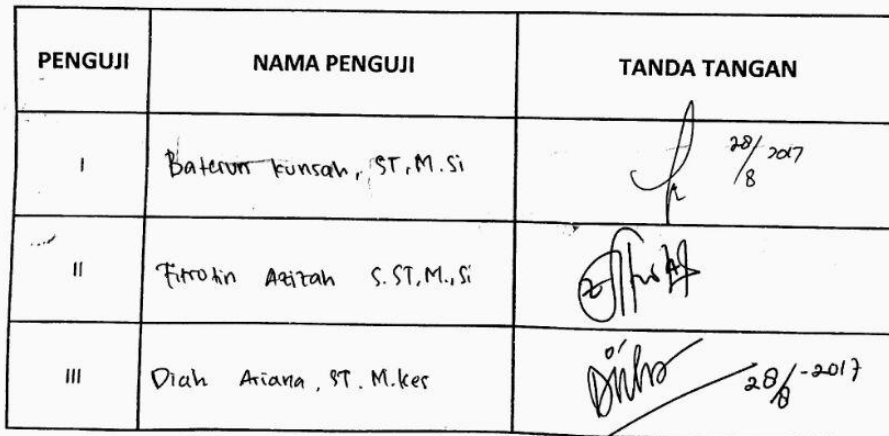 PENGUJI NAMA PENGUJI TANDA TANGAN
I Baterun Kunsah, ST, M.Si 28/8 2017
II Fitrotin Azizah S.ST, M., Si
III Diah Ariana, ST. M.Kes 28/8-2017